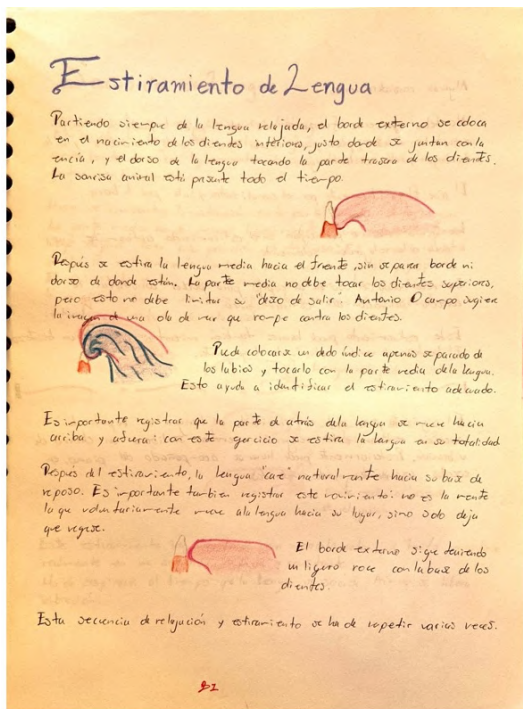 Estiramiento de Lengua
Partiendo siempre de la lengua relajada, el borde externo se coloca
en el nacimiento de los dientes inferiores, justo donde se juntan con la
encía, y el dorso de la lengua tocando la parte trasera de los dientes.
La sonrisa animal está presente todo el tiempo.
Después se estira la lengua media hacia el frente, sin separar borde ni
dorso de donde están. La parte media no debe tocar los dientes superiores,
pero esto no debe limitar su "deseo de salir". Antonio Ocampo sugiere
la imagen de una ola de mar que rompe contra los dientes.
Puede colocarse un dedo índice apenas separado de
los labios y tocarlo con la parte media de la lengua.
Esto ayuda a identificar el estiramiento adecuado.
Es importante registrar que la parte de atrás de la lengua se mueve hacia
arriba y afuera: con este ejercicio se estira la lengua en su totalidad
Después del estiramiento, la lengua "cae" naturalmente hacia su base de
reposo. Es importante también registrar este movimiento: no es la mente
la que voluntariamente mueve a la lengua hacia su lugar, sino solo deja
que regrese.
El borde externo sigue teniendo
un ligero roce con la base de los
dientes.
Esta secuencia de relajación y estiramiento se ha de repetir varias veces.